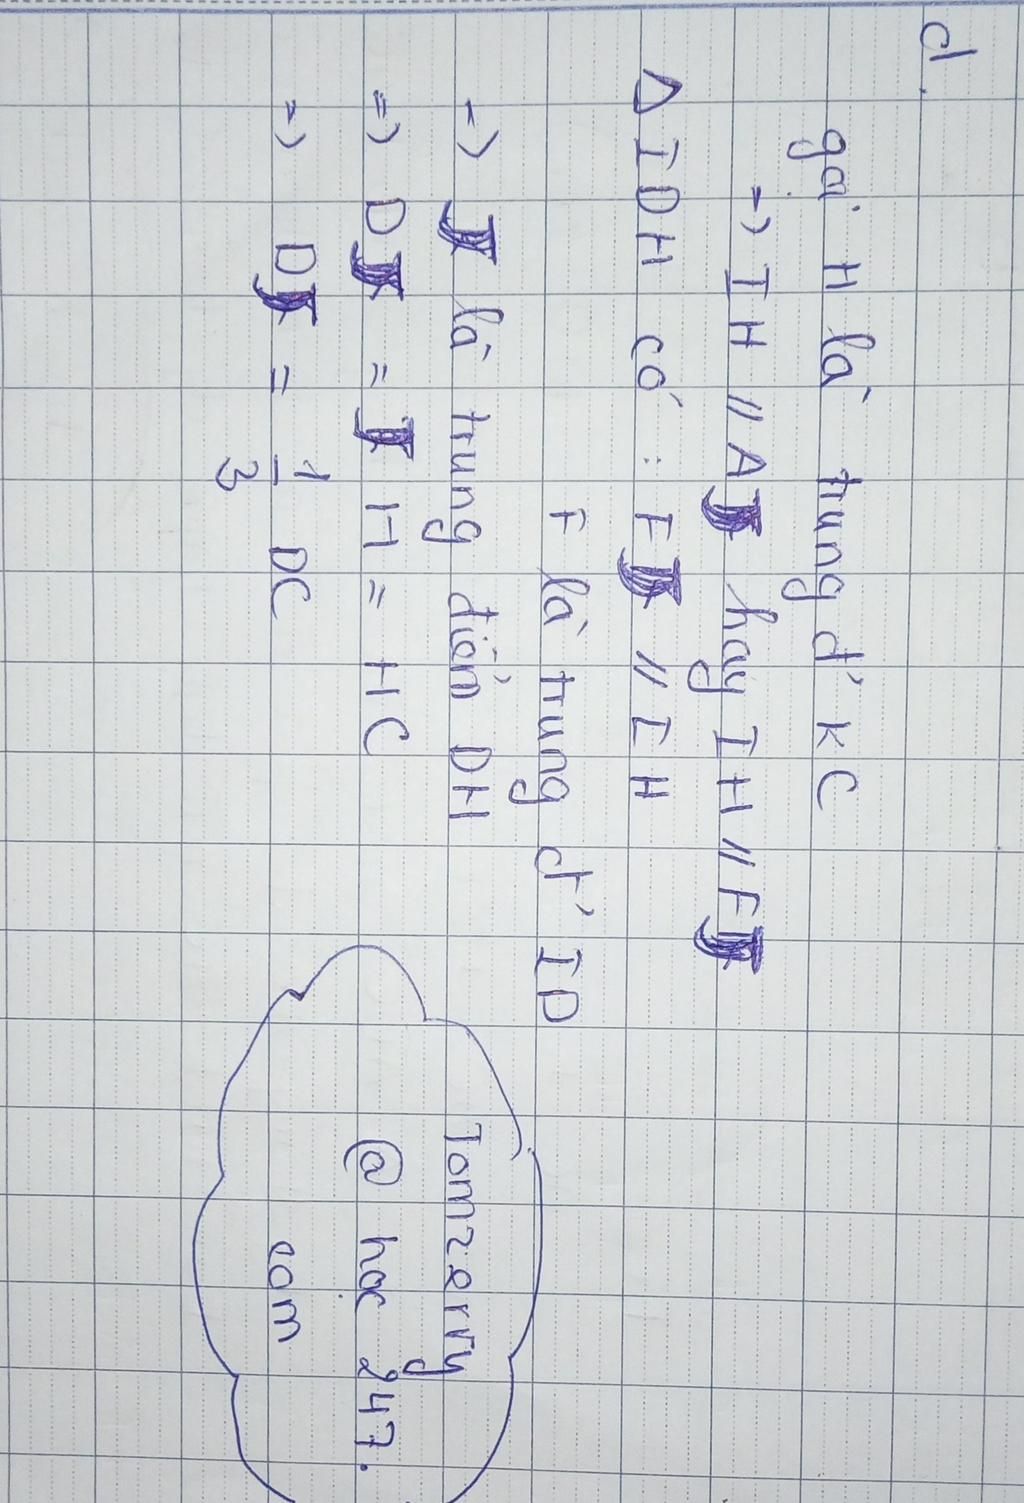 d.
gọi H là trung đ' KC
=) IH // AJ hay IH // FJ
Δ IDH có : FJ // IH
F là trung đ' ID
=) J là trung điểm DH
=) DJ = JH = HC
=) DJ = 1/3 DC
Tomzerry
@ học 247.
com